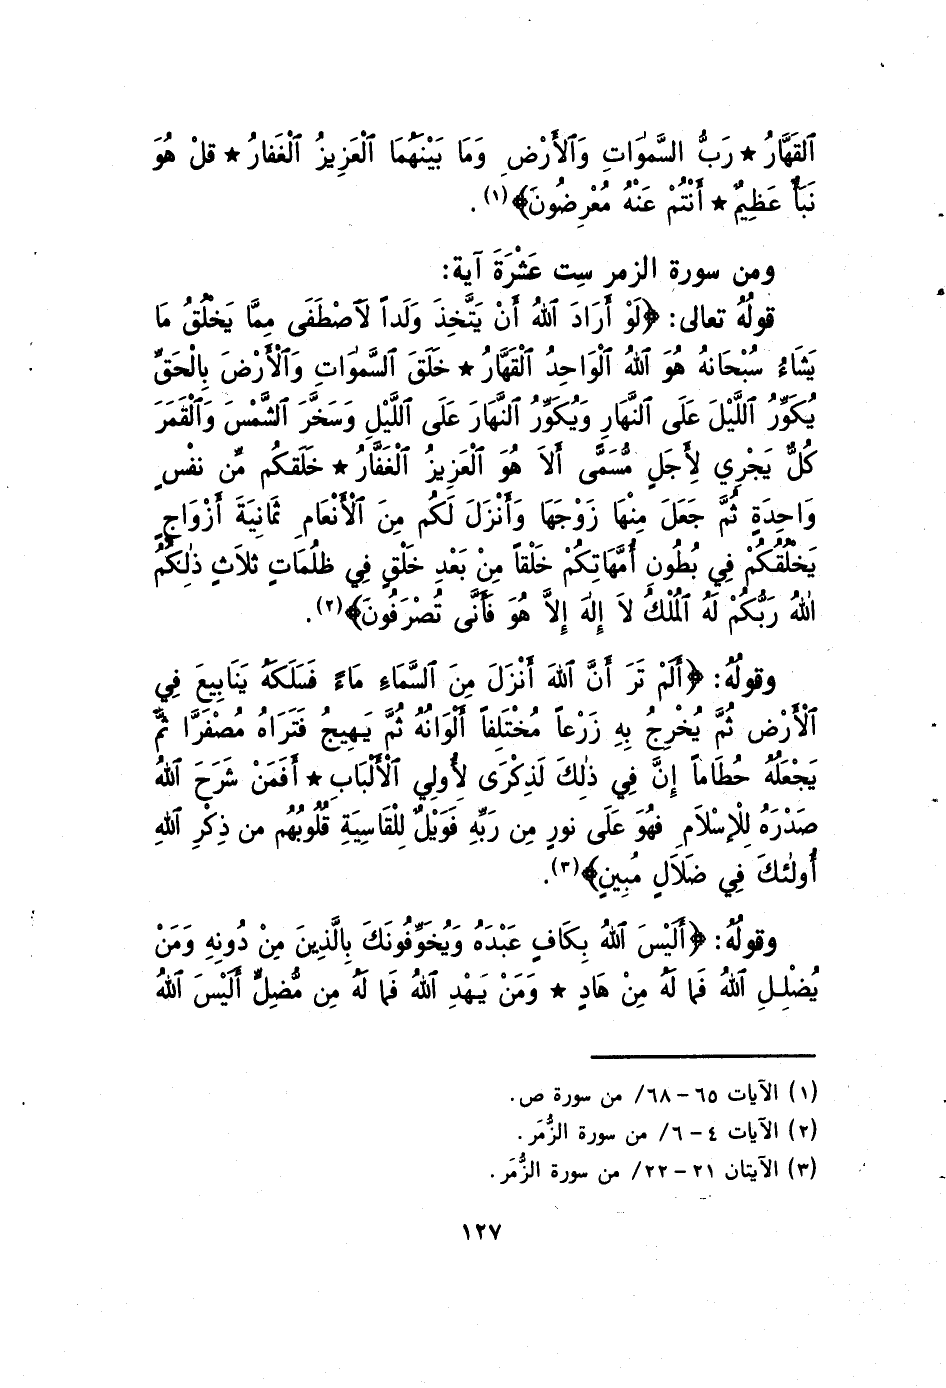 ٱلقَهَّارُ ★ رَبُّ السَّموَاتِ وَٱلأَرْضِ وَمَا بَيْنَهُمَا ٱلْعَزِيزُ ٱلْغَفارُ ★ قلْ هُوَ
نَبَأٌ عَظِيمٌ ★ أَنْتُمْ عَنْهُ مُعْرِضُونَ﴾(١) .
ومن سورة الزمر سِت عَشْرَةَ آية:
قولُهُ تعالى: ﴿لَوْ أَرَادَ ٱللهُ أَنْ يَتَّخِذَ وَلَداً لَٱصْطَفَى مِمَّا يَخْلُقُ مَا
يَشَاءُ سُبْحَانهُ هُوَ ٱللهُ ٱلْوَاحِدُ ٱلْقَهَّارُ ★ خَلَقَ ٱلسَّموَاتِ وَٱلْأَرْضَ بِالْحَقِّ
يُكَوِّرُ ٱللَّيْلَ عَلَى ٱلنَّهَارِ وَيُكَوِّرُ ٱلنَّهَارَ عَلَى ٱللَّيْلِ وَسَخَّرَ ٱلشَّمْسَ وَٱلْقَمَرَ
كُلٌّ يَجْرِي لِأَجَلٍ مُّسَمًّى أَلاَ هُوَ ٱلْعَزِيزُ ٱلْغَفَّارُ ★ خَلَقكُم مِّن نفْسٍ
وَاحِدَةٍ ثُمَّ جَعَلَ مِنْهَا زَوْجَهَا وَأَنْزَلَ لَكُم مِنَ ٱلْأَنْعَامِ ثَمَانِيَةَ أَزْوَاجٍ
يَخْلُقُكُمْ فِي بُطُونِ أُمَّهَاتِكُمْ خَلْقاً مِنْ بَعْدِ خَلْقٍ فِي ظلُمَاتٍ ثلاَثٍ ذٰلِكُمُ
ٱللهُ رَبُّكُمْ لَهُ ٱلمُلْكُ لاَ إِلٰهَ إِلاَّ هُوَ فَأَنَّى تُصْرَفُونَ﴾(٢) .
وقولُهُ: ﴿أَلَمْ تَرَ أَنَّ ٱللهَ أَنْزَلَ مِنَ ٱلسَّمَاءِ مَاءً فَسَلَكَهُ يَنَابِيعَ فِي
ٱلْأَرْضِ ثُمَّ يُخْرِجُ بِهِ زَرْعاً مُخْتَلِفاً أَلْوَانُهُ ثُمَّ يَهِيجُ فَتَرَاهُ مُصْفَرًّا ثُمَّ
يَجْعَلُهُ حُطَاماً إِنَّ فِي ذٰلِكَ لَذِكْرَى لِأُولِي ٱلْأَلْبَابِ ★ أَفَمَنْ شَرَحَ ٱللهُ
صَدْرَهُ لِلْإِسْلَامِ فهُوَ عَلَى نورٍ مِن رَبِّهِ فَوَيْلٌ لِلْقَاسِيَةِ قُلُوبُهُم من ذِكْرِ ٱللهِ
أُولٰئكَ فِي ضَلَالٍ مُبِينٍ﴾(٣).
وقولُهُ: ﴿أَلَيْسَ ٱللهُ بِكَافٍ عَبْدَهُ وَيُخَوِّفُونَكَ بِالَّذِينَ مِنْ دُونِهِ وَمَنْ
يُضْلِلِ ٱللهُ فَمَا لَهُ مِنْ هَادٍ ★ وَمَنْ يَهْدِ ٱللهُ فَمَا لَهُ مِن مُّضِلٍّ أَلَيْسَ ٱللهُ
(١) الآيات ٦٥ – ٦٨/ من سورة ص .
(٢) الآيات ٤ – ٦/ من سورة الزُّمَر .
(٣) الآيتان ٢١ – ٢٢/ من سورة الزُّمَر .
١٢٧